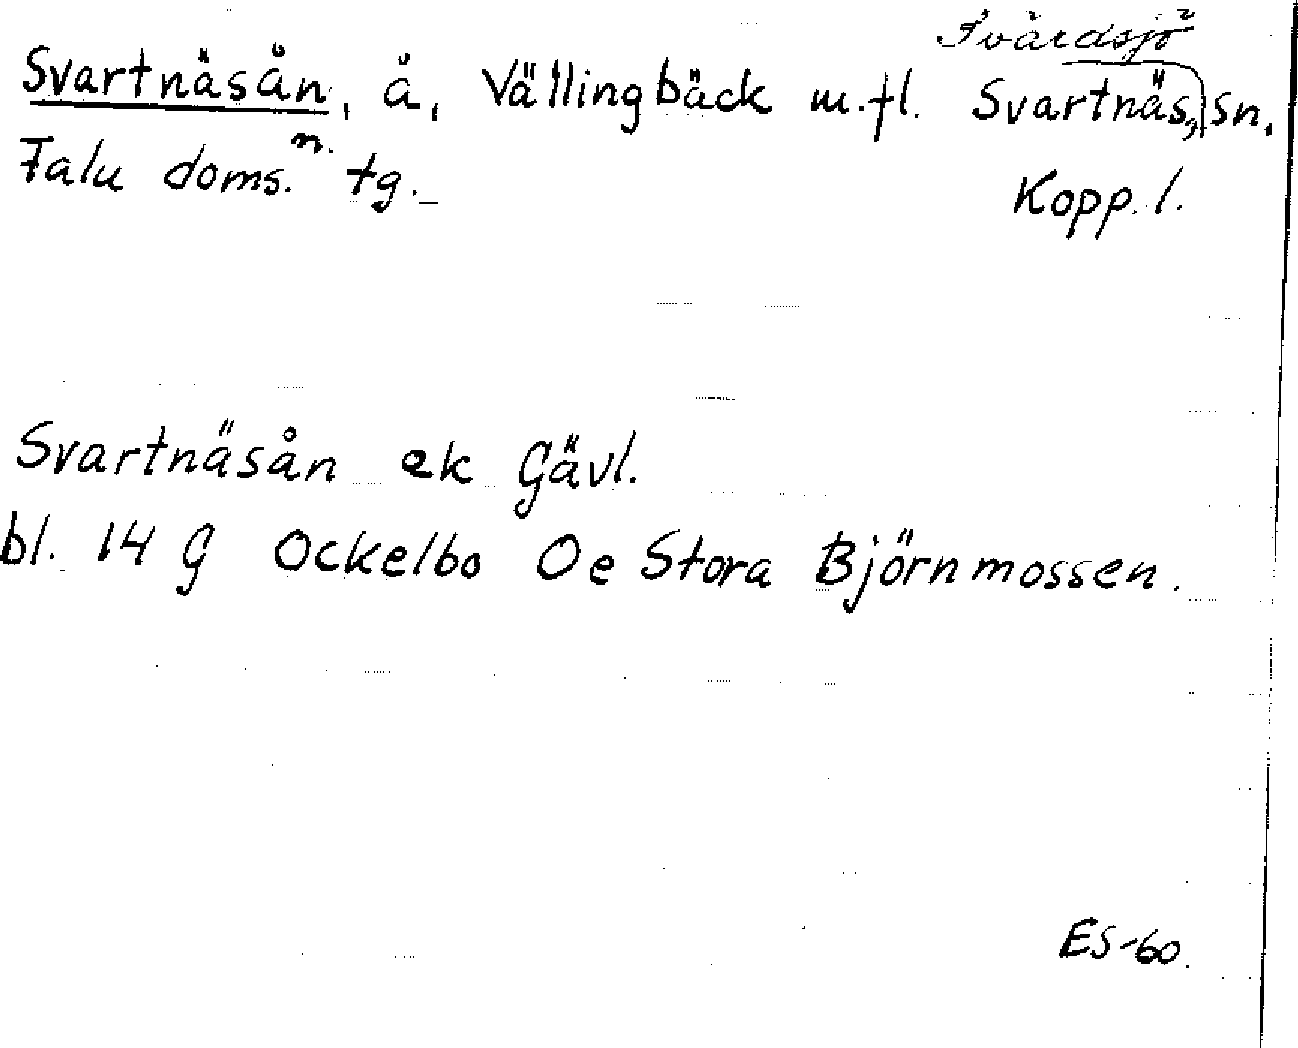 Svärdsjö
Svartnäsån, å, Vällingbäck m.fl. Svartnäs, sn.
Falu doms. n. tg. Kopp. l.
Svartnäsån ek Gävl.
bl. 14 G Ockelbo Oe Stora Björnmossen.
ES-60.